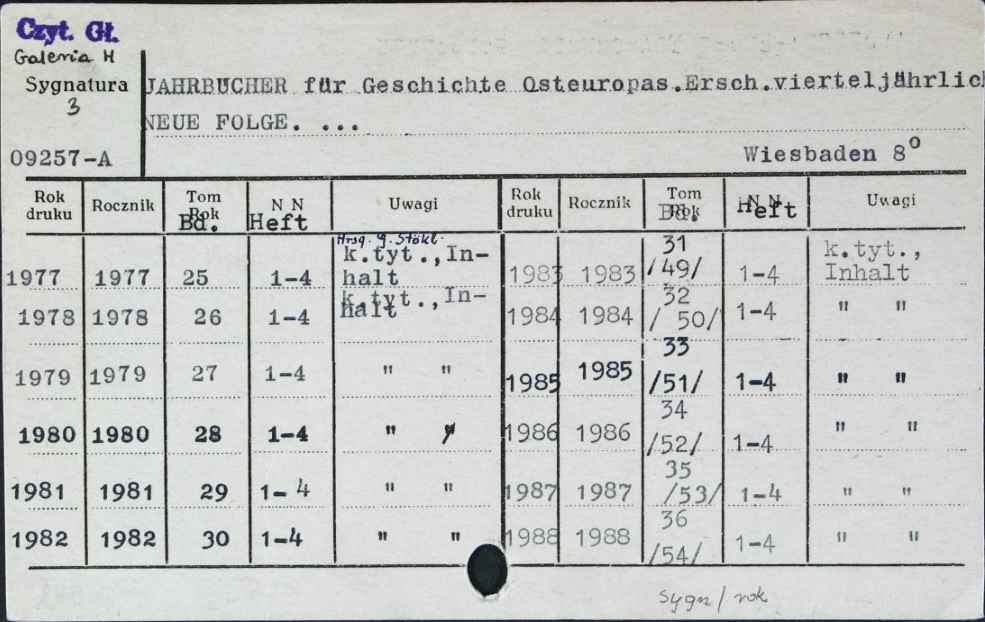 Czyt. Gł.
Galeria H
Sygnatura
3
09257-A
JAHRBUCHER für Geschichte Osteuropas.Ersch.vierteljährlich
NEUE FOLGE. ...
Wiesbaden 8°
Rok druku Rocznik Tom Rok Bd. N N Heft Uwagi Rok druku Rocznik Tom Rok Bd. N N Heft Uwagi
Hrsg. g. Stökl.
1977 1977 25 1-4 k.tyt.,Inhalt 1983 1983 31 /49/ 1-4 k.tyt., Inhalt
1978 1978 26 1-4 k.tyt.,Inhalt 1984 1984 32 / 50/ 1-4 " "
1979 1979 27 1-4 " " 1985 1985 33 /51/ 1-4 " "
1980 1980 28 1-4 " " 1986 1986 34 /52/ 1-4 " "
1981 1981 29 1-4 " " 1987 1987 35 /53/ 1-4 " "
1982 1982 30 1-4 " " 1988 1988 36 /54/ 1-4 " "
Sygn/ rok